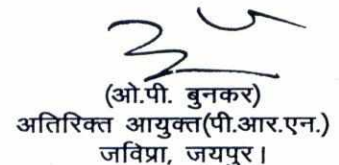 (ओ.पी. बुनकर)
अतिरिक्त आयुक्त(पी.आर.एन.)
जविप्रा, जयपुर।